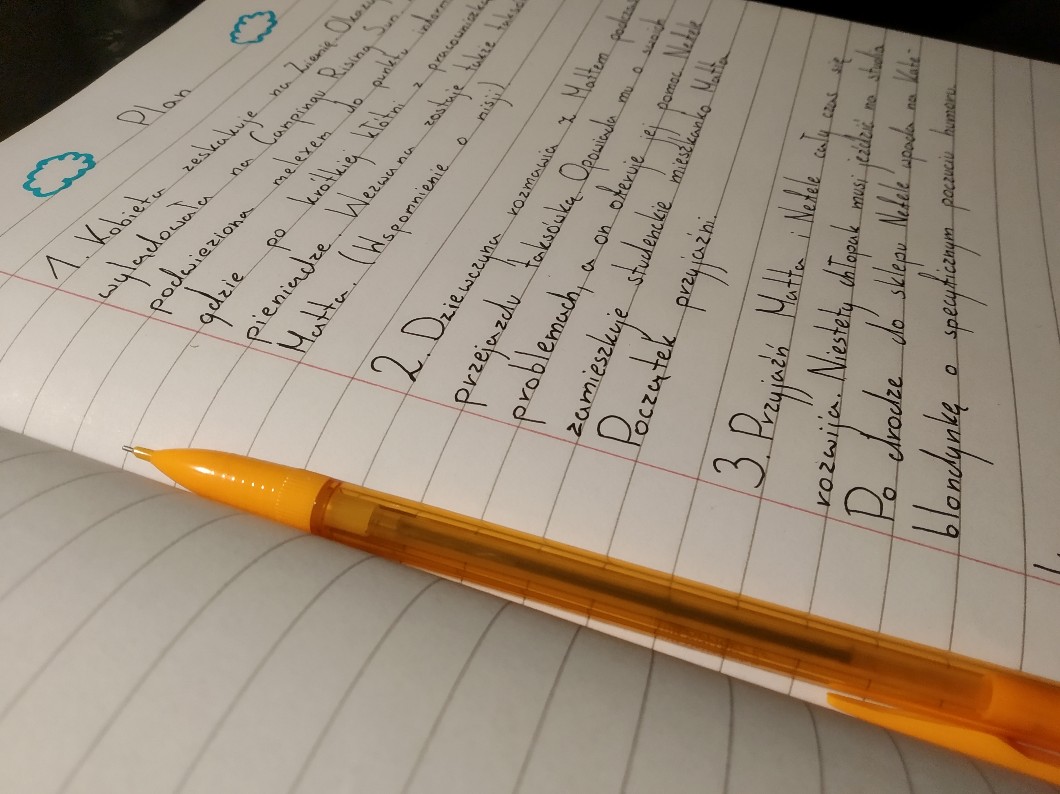 Plan
1. Kobieta zeskakuje na Ziemię. Okazuje
wylądowała na Campingu Rising Sun
podwieziona melexem do punktu inform
gdzie po krótkiej kłótni z pracowniczką
pieniądze. Wezwana zostaje także taksó
Matta. (Wspomnienie o misji)
2. Dziewczyna rozmawia z Mattem podczas
przejazdu taksówką. Opowiada mu o swoich
problemach, a on oferuje jej pomoc. Nefele
zamieszkuje studenckie mieszkanko Matta
Początek przyjaźni.
3. Przyjaźń Matta i Nefele cały czas się
rozwija. Niestety chłopak musi jeździć na studia
Po drodze do sklepu Nefele wpada na Kate-
blondynkę o specyficznym poczuciu humoru.